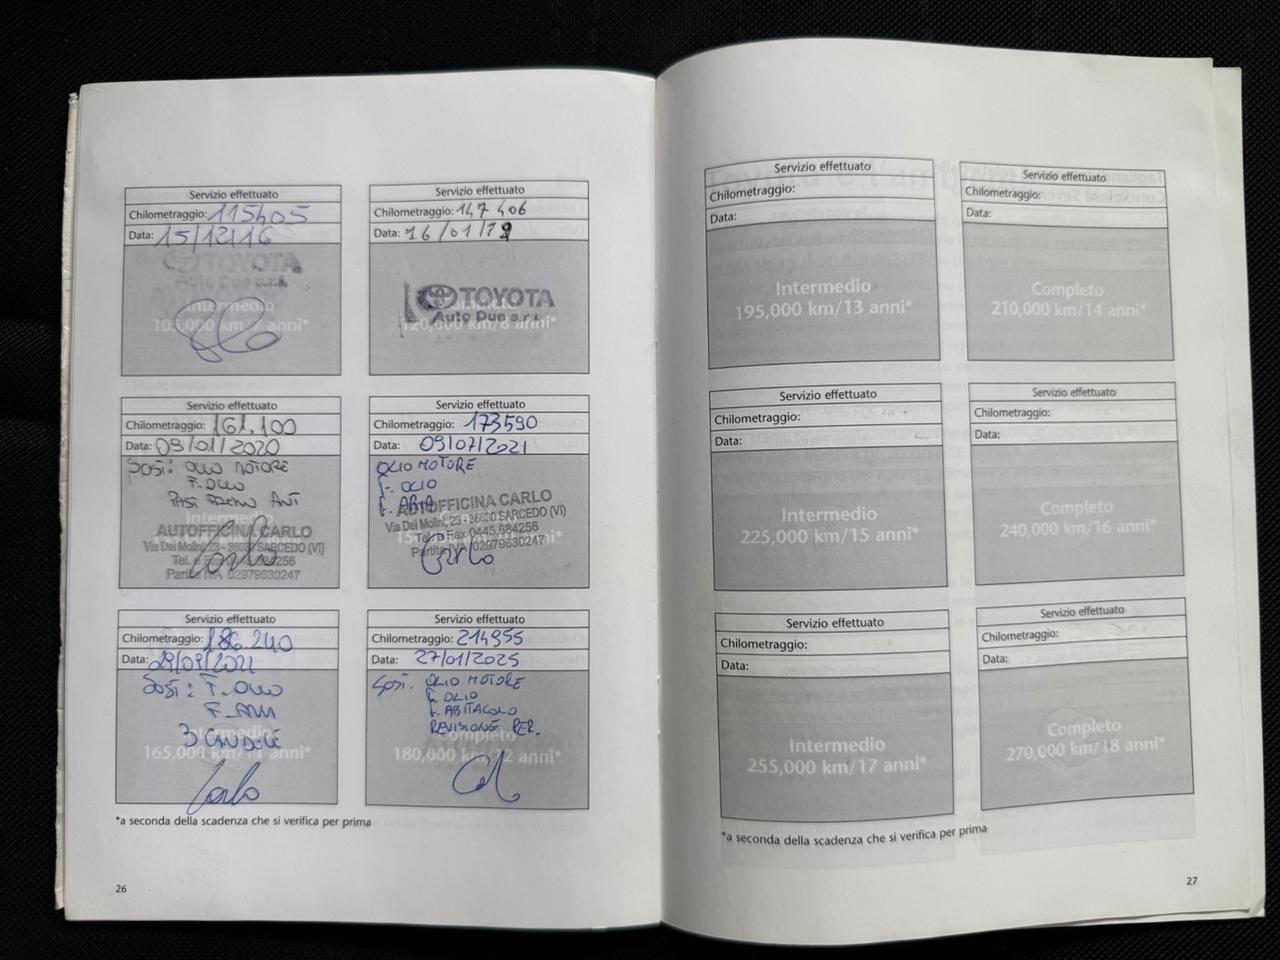 Servizio effettuato
Chilometraggio: 115405
Data: 15/12/16
TOYOTA
Auto Due s.r.l.
Intermedio
105,000 km/7 anni*
Servizio effettuato
Chilometraggio: 147 406
Data: 16/01/19
TOYOTA
Auto Due s.r.l.
120,000 km/8 anni*
Servizio effettuato
Chilometraggio: 161.100
Data: 09/01/2020
SOST: OLIO MOTORE
F. OLIO
PAST FRENO ANT
Intermedio
AUTOFFICINA CARLO
Via Dei Molini, 23 - 36030 SARCEDO (VI)
Partita IVA 02979630247
Carlo
Servizio effettuato
Chilometraggio: 173590
Data: 09/07/2021
OLIO MOTORE
F. OLIO
F. ABITA
AUTOFFICINA CARLO
Via Dei Molini, 23 - 36030 SARCEDO (VI)
Tel. e Fax 0445.884256
Partita IVA 02979630247
Carlo
Servizio effettuato
Chilometraggio: 186.240
Data:
SOST: F. OLIO
F. ARIA
3 CANDELE
Intermedio
165,000 km/11 anni*
Carlo
Servizio effettuato
Chilometraggio: 214955
Data: 27/01/2025
SOST. OLIO MOTORE
F. OLIO
F. ABITACOLO
REVISIONE PER.
Completo
180,000 km/12 anni*
*a seconda della scadenza che si verifica per prima
26
Servizio effettuato
Chilometraggio:
Data:
Intermedio
195,000 km/13 anni*
Servizio effettuato
Chilometraggio:
Data:
Completo
210,000 km/14 anni*
Servizio effettuato
Chilometraggio:
Data:
Intermedio
225,000 km/15 anni*
Servizio effettuato
Chilometraggio:
Data:
Completo
240,000 km/16 anni*
Servizio effettuato
Chilometraggio:
Data:
Intermedio
255,000 km/17 anni*
Servizio effettuato
Chilometraggio:
Data:
Completo
270,000 km/18 anni*
*a seconda della scadenza che si verifica per prima
27